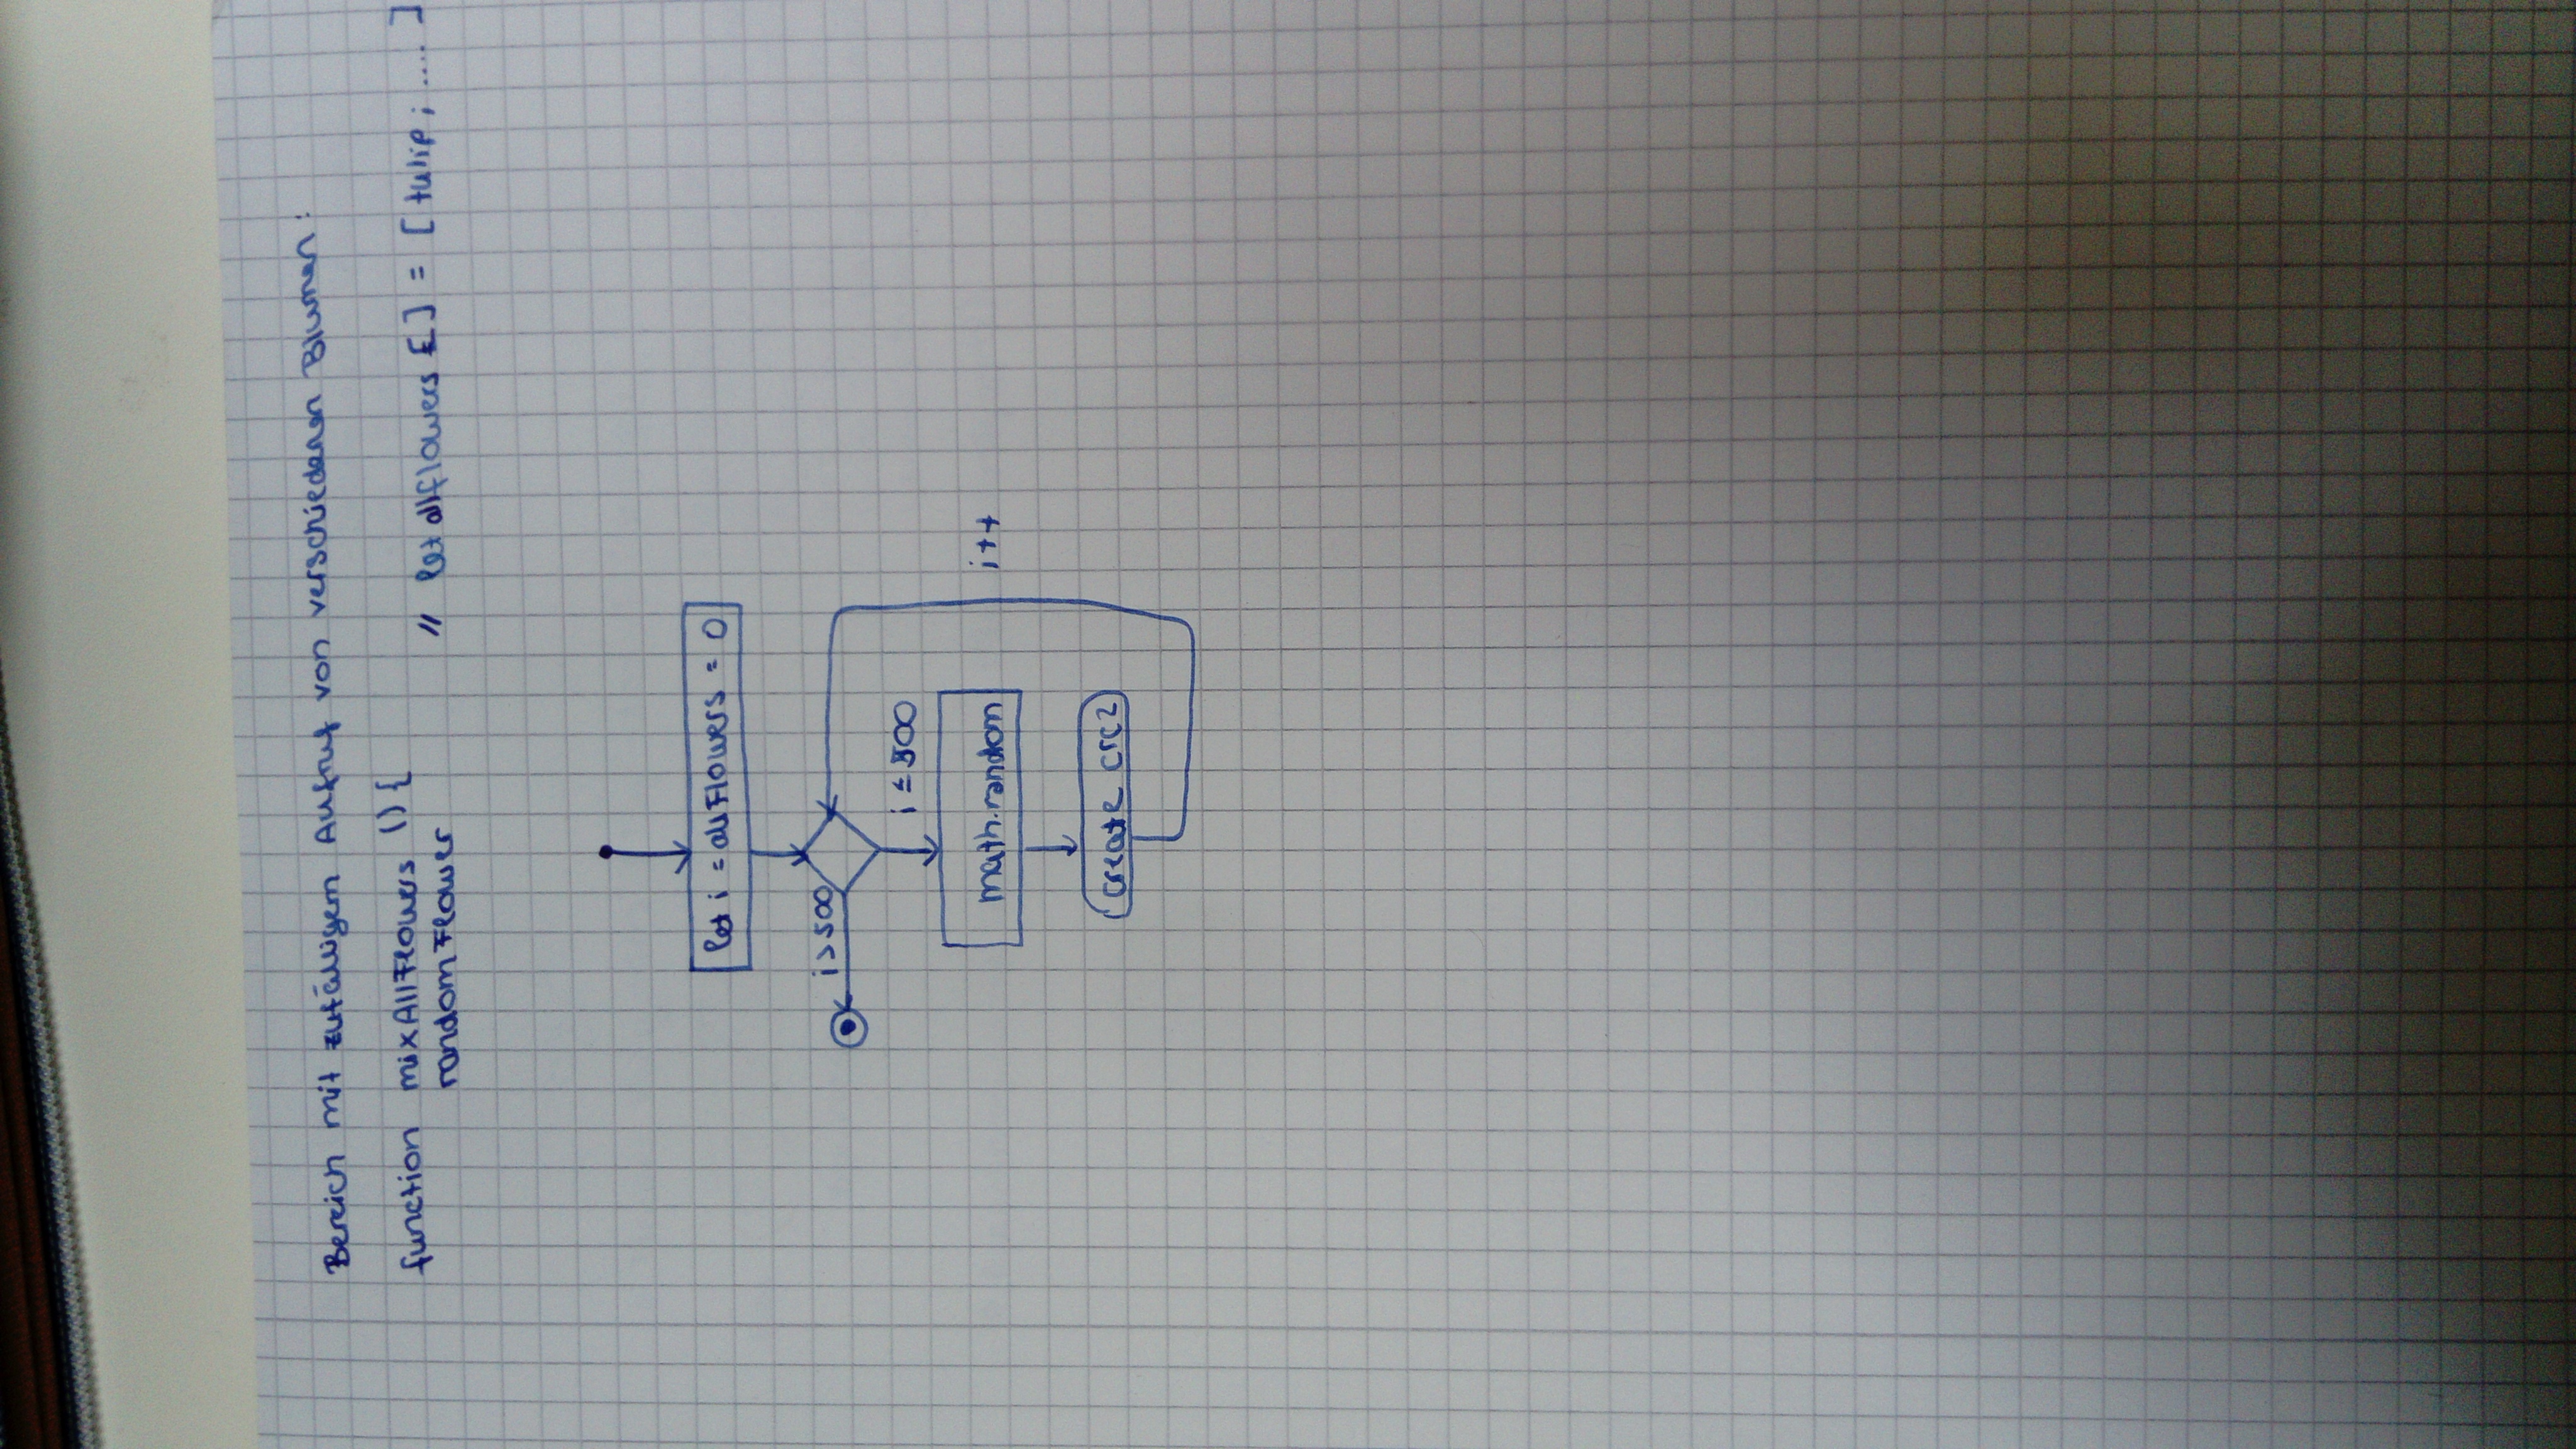 Bereich mit zufälligem Aufruf von verschiedenen Blumen:
function mixAllFlowers () {
randomFlower
// let allflowers [] = [tulip; .... ]
let i = allFlowers = 0
i > 500
i ≤ 500
math.random
i++
create crc2